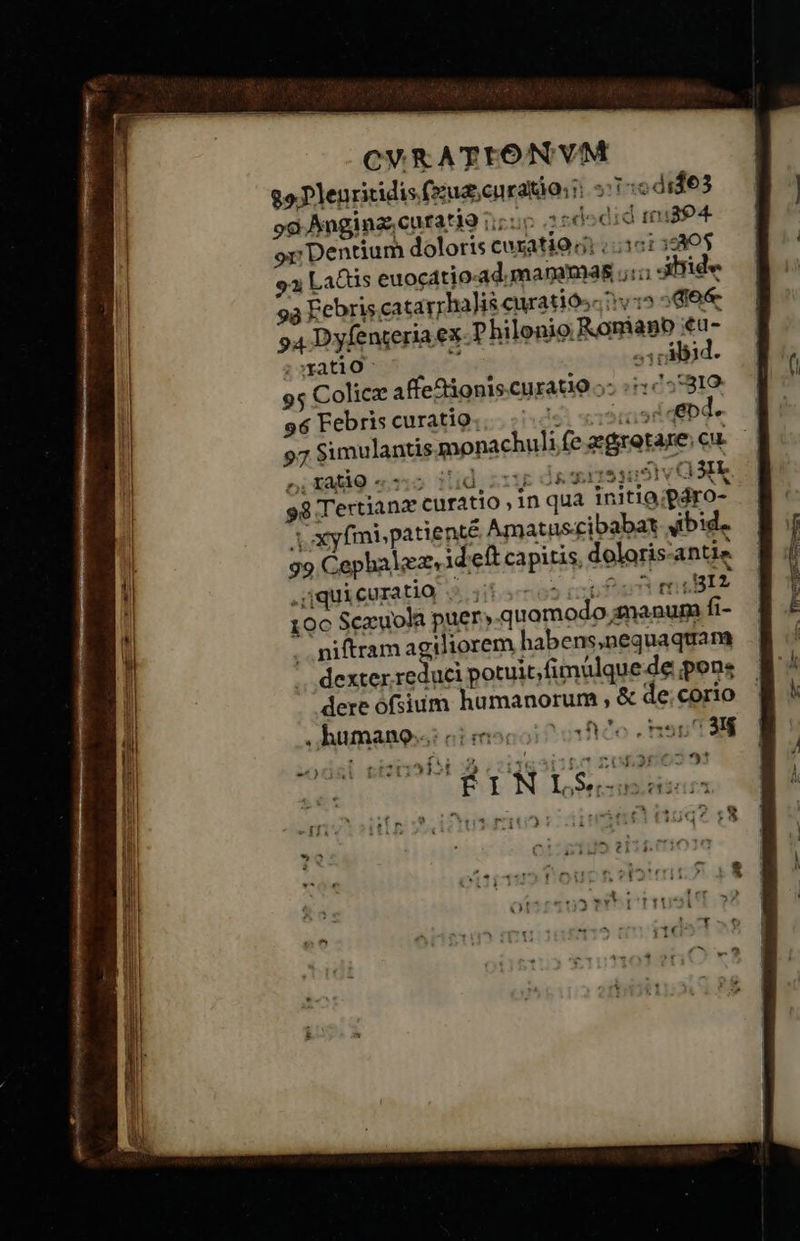 CVRATIONVM
89 Pleuritidis sæuæ, curatio. 303
90 Anginæ, curatio 304
91 Dentium doloris curatio 305
92 Lactis euocatio ad mammas ibide
93 Febris catarrhalis curatio
94 Dysenteria ex Philonio Romano cu-
ratio ibid.
95 Colicæ affectionis curatio 310
96 Febris curatio. eod.
97 Simulantis monachuli se ægrotare, cu
ratio 311
98 Tertianæ curatio, in qua initio paro-
xysmi, patienté Amatus cibabat ibid.
99 Cephalææ, id est capitis, doloris anti-
qui curatio 312
100 Scæuola puer, quomodo manum si-
nistram agiliorem habens, nequaquam
dexter reduci potuit, simulque de pon-
dere ossium humanorum, & de corio
humano.
FINIS.